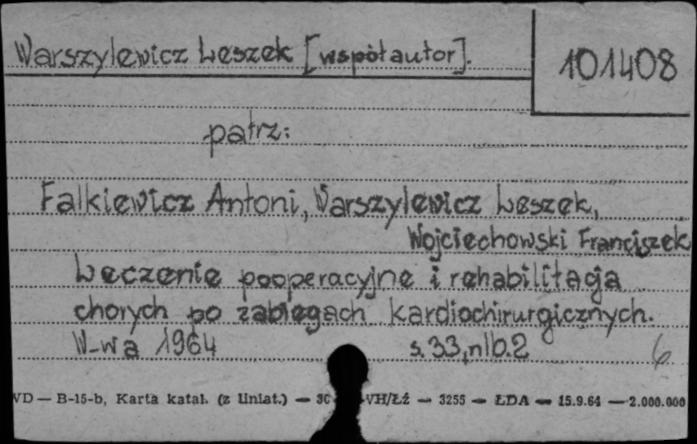 Warszylewicz Leszek [współautor].
101408
patrz:
Falkiewicz Antoni, Warszylewicz Leszek,
Wojciechowski Franciszek
Leczenie pooperacyjne i rehabilitacja
chorych po zabiegach kardiochirurgicznych.
W-wa 1964 s. 33, nlb. 2 6.
VD — B-15-b, Karta katal. (z Uniat.) — VH/Łż — 3255 — ŁDA — 15.9.64 — 2.000.000